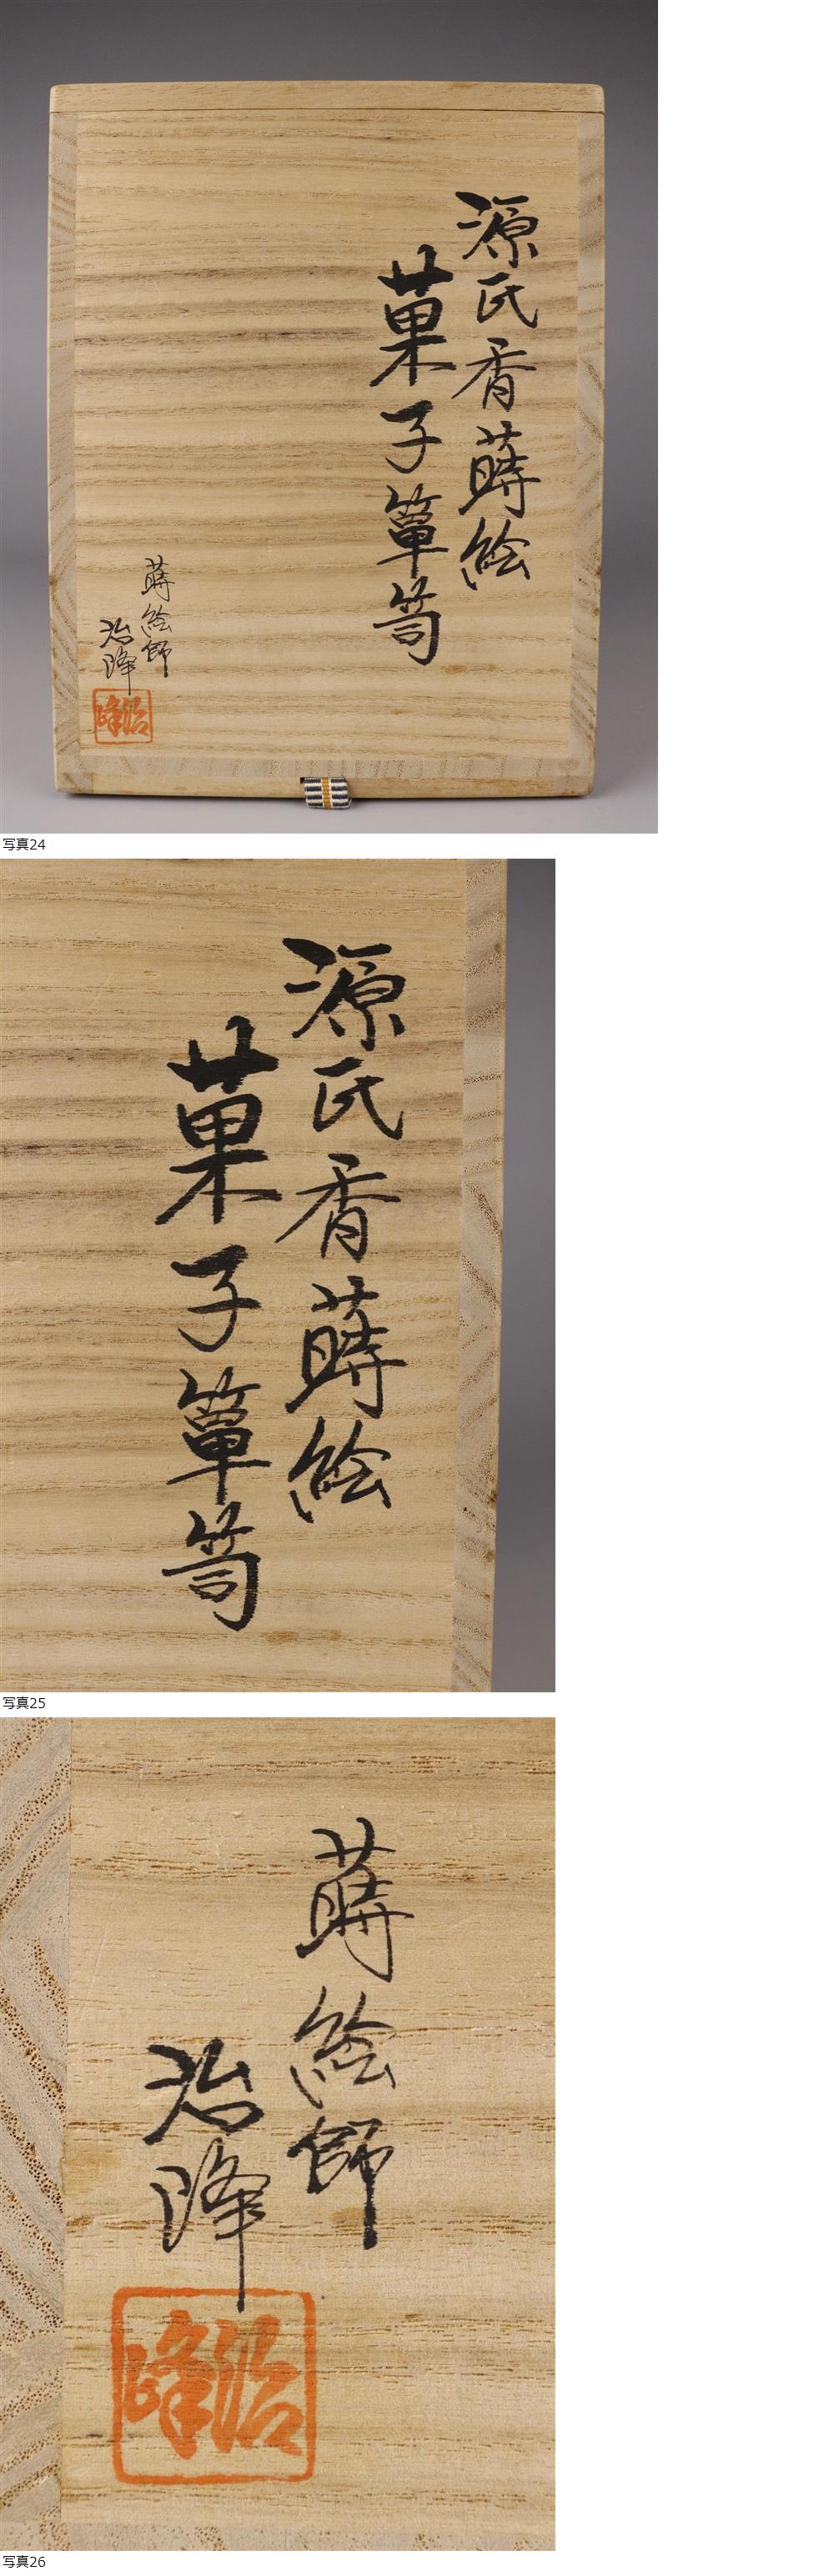 源氏香蒔絵
菓子簞笥
蒔絵師
治峰
治峰
写真24
源氏香蒔絵
菓子簞笥
写真25
蒔絵師
治峰
治峰
写真26